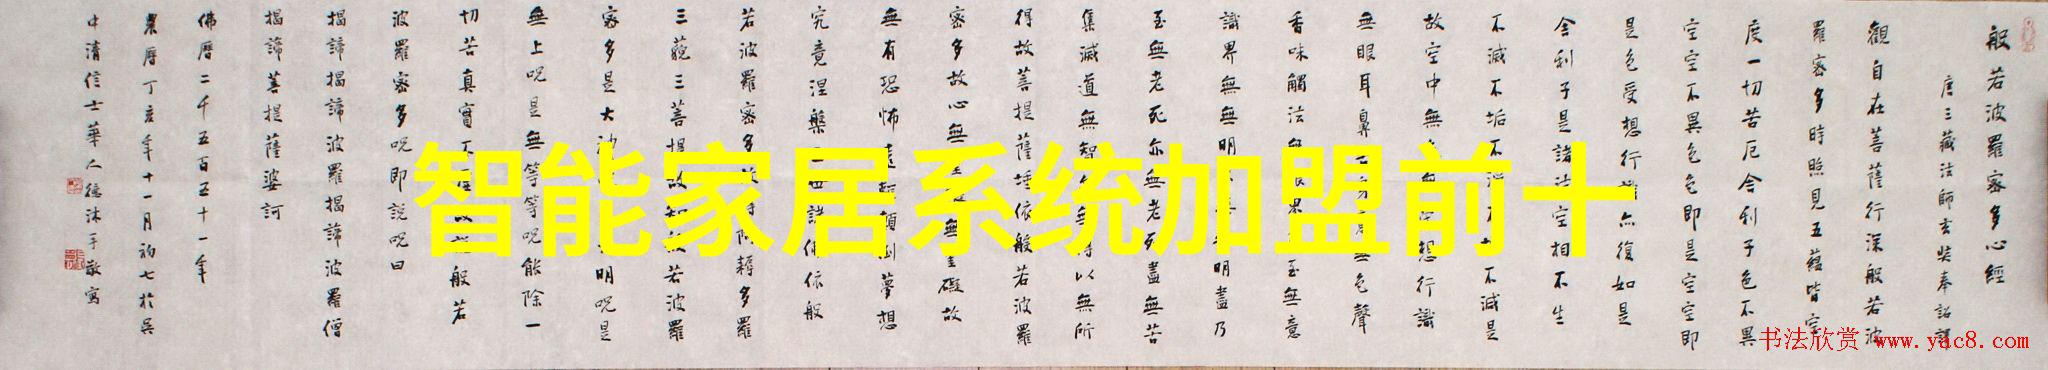 般若波羅密多心經
唐三藏法師玄奘奉詔譯
觀自在菩薩行深般若波
羅密多時照見五蘊皆空
度一切苦厄舍利子色不異
空空不異色色即是空空即
是色受想行識亦復如是
舍利子是諸法空相不生
不滅不垢不淨不增不減是
故空中無色無受想行識
無眼耳鼻舌身意無色聲
香味觸法無眼界乃至無意
識界無無明亦無無明盡乃
至無老死亦無老死盡無苦
集滅道無智亦無得以無所
得故菩提薩埵依般若波羅
密多故心無罣礙無罣礙故
無有恐怖遠離顛倒夢想
究竟涅槃三世諸佛依般
若波羅密多故得阿耨多羅
三藐三菩提故知般若波羅
密多是大神咒是大明咒是
無上咒是無等等咒能除一
切苦真實不虛故說般若
波羅密多咒即說咒曰
揭諦揭諦波羅揭諦波羅僧
揭諦菩提薩婆訶
佛曆二千五百五十一年
農曆丁亥年十一月初七於吳
中清信士華人德沐手敬寫
智能家居系统加盟前十
书法欣赏 www.yac8.com